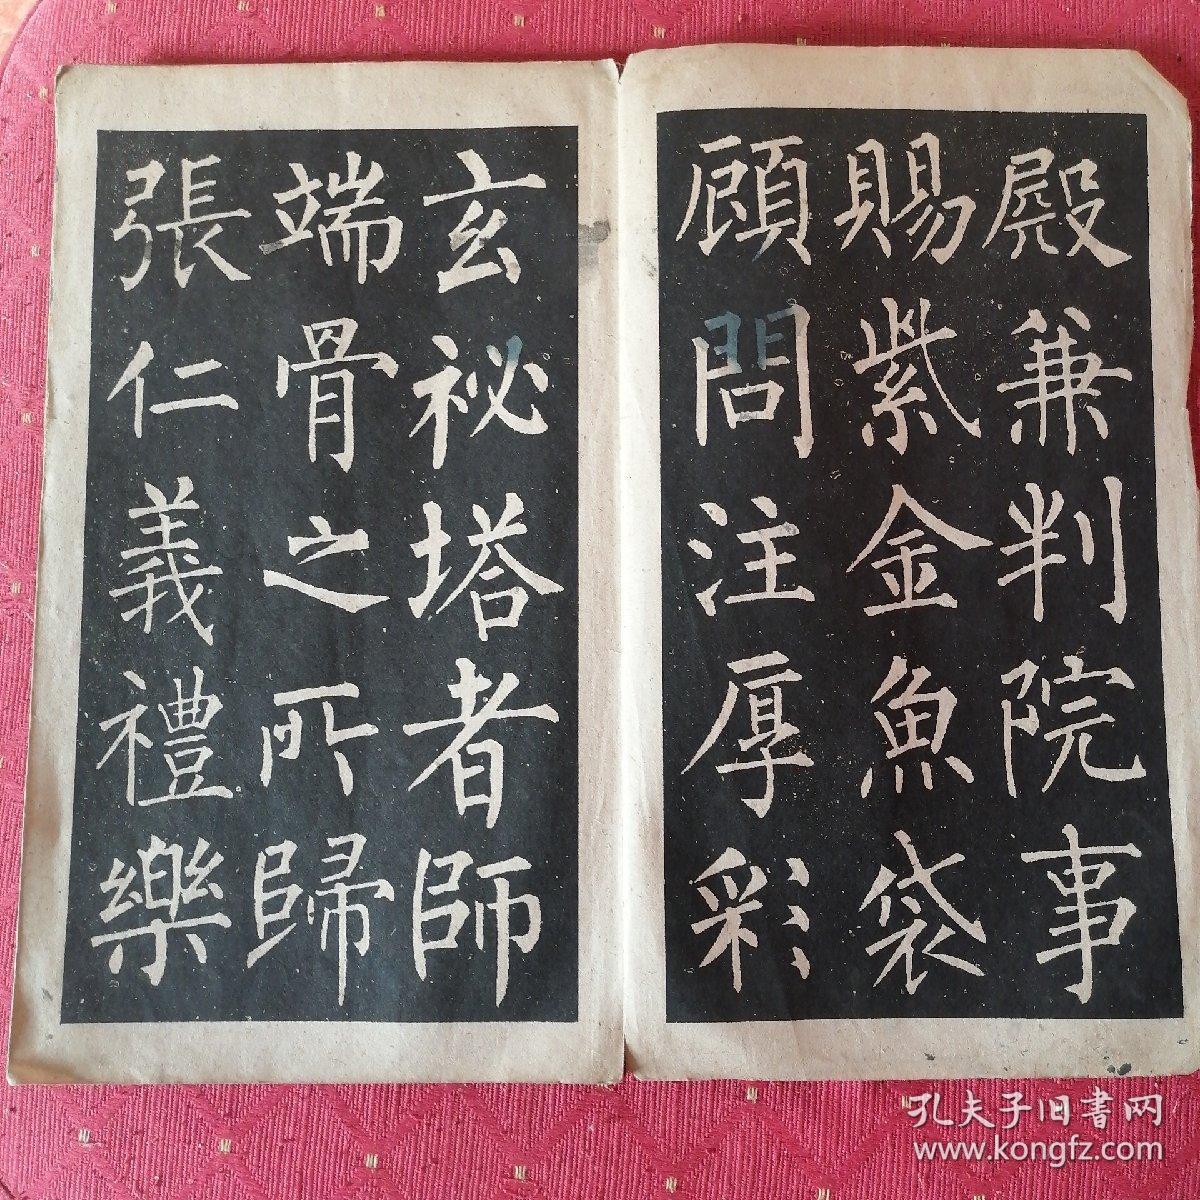 殿兼判院事
賜紫金魚袋
顧問注厚彩
玄祕塔者師
端骨之所歸
張仁義禮樂
孔夫子旧書网
www.kongfz.com